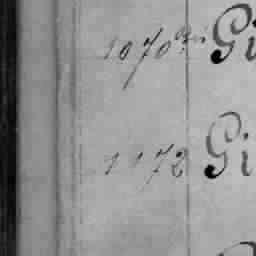 1070 Gi
1172 Gi